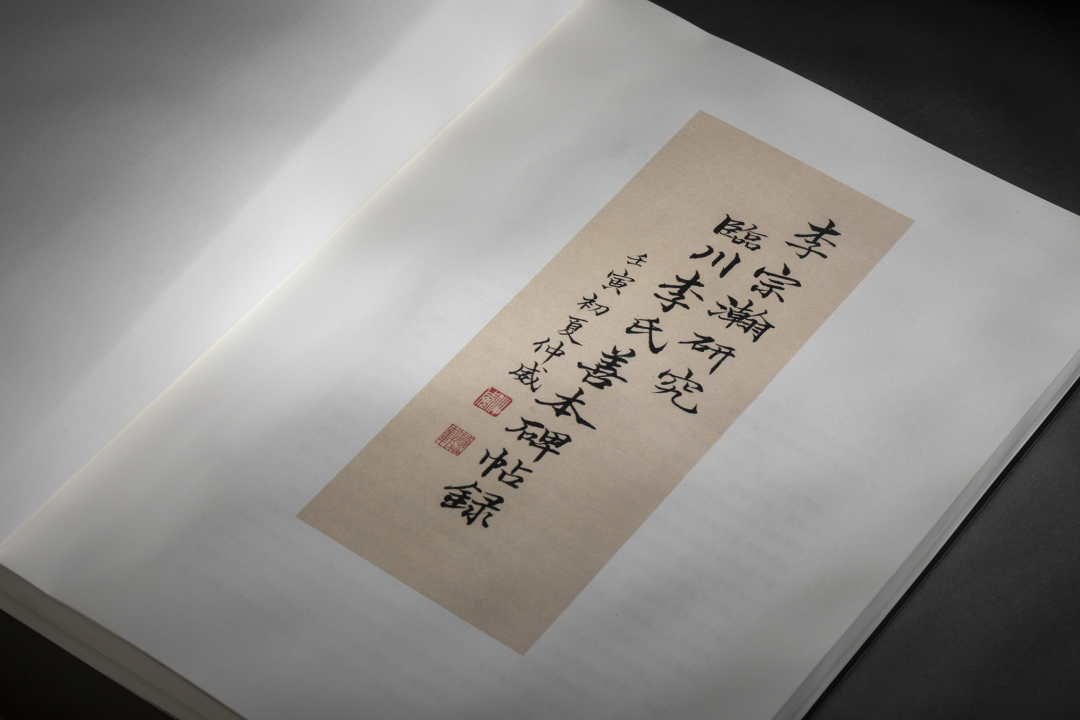 李宗瀚研究
臨川李氏善本碑帖録
壬寅初夏仲威